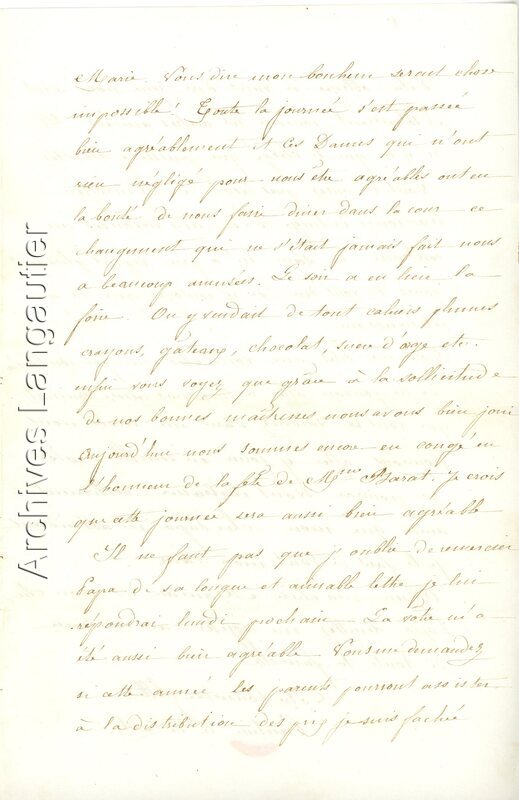 Marie. Vous dire mon bonheur serait chose
impossible! Toute la journée s'est passée
bien agréablement et ces Dames qui n'ont
rien négligé pour nous être agréables ont eu
la bonté de nous faire diner dans la cour ce
changement qui ne s'était jamais fait nous
a beaucoup amusées. Le soir a eu lieu la
foire. On y vendait de tout cahiers plumes
crayons, gâteaux, chocolat, sucre d'orge etc.
enfin vous voyez que grâce à la sollicitude
de nos bonnes maîtresses nous avons bien joui
Aujourd'hui nous sommes encore en congé en
l'honneur de la fête de Mme Barat. Je crois
que cette journée sera aussi bien agréable
Il ne faut pas que j'oublie de remercier
Papa de sa longue et aimable lettre je lui
répondrai lundi prochain. La vôtre m'a
été aussi bien agréable. Vous me demandez
si cette année les parents pourront assister
à la distribution des prix je suis fachée
Archives Langautier